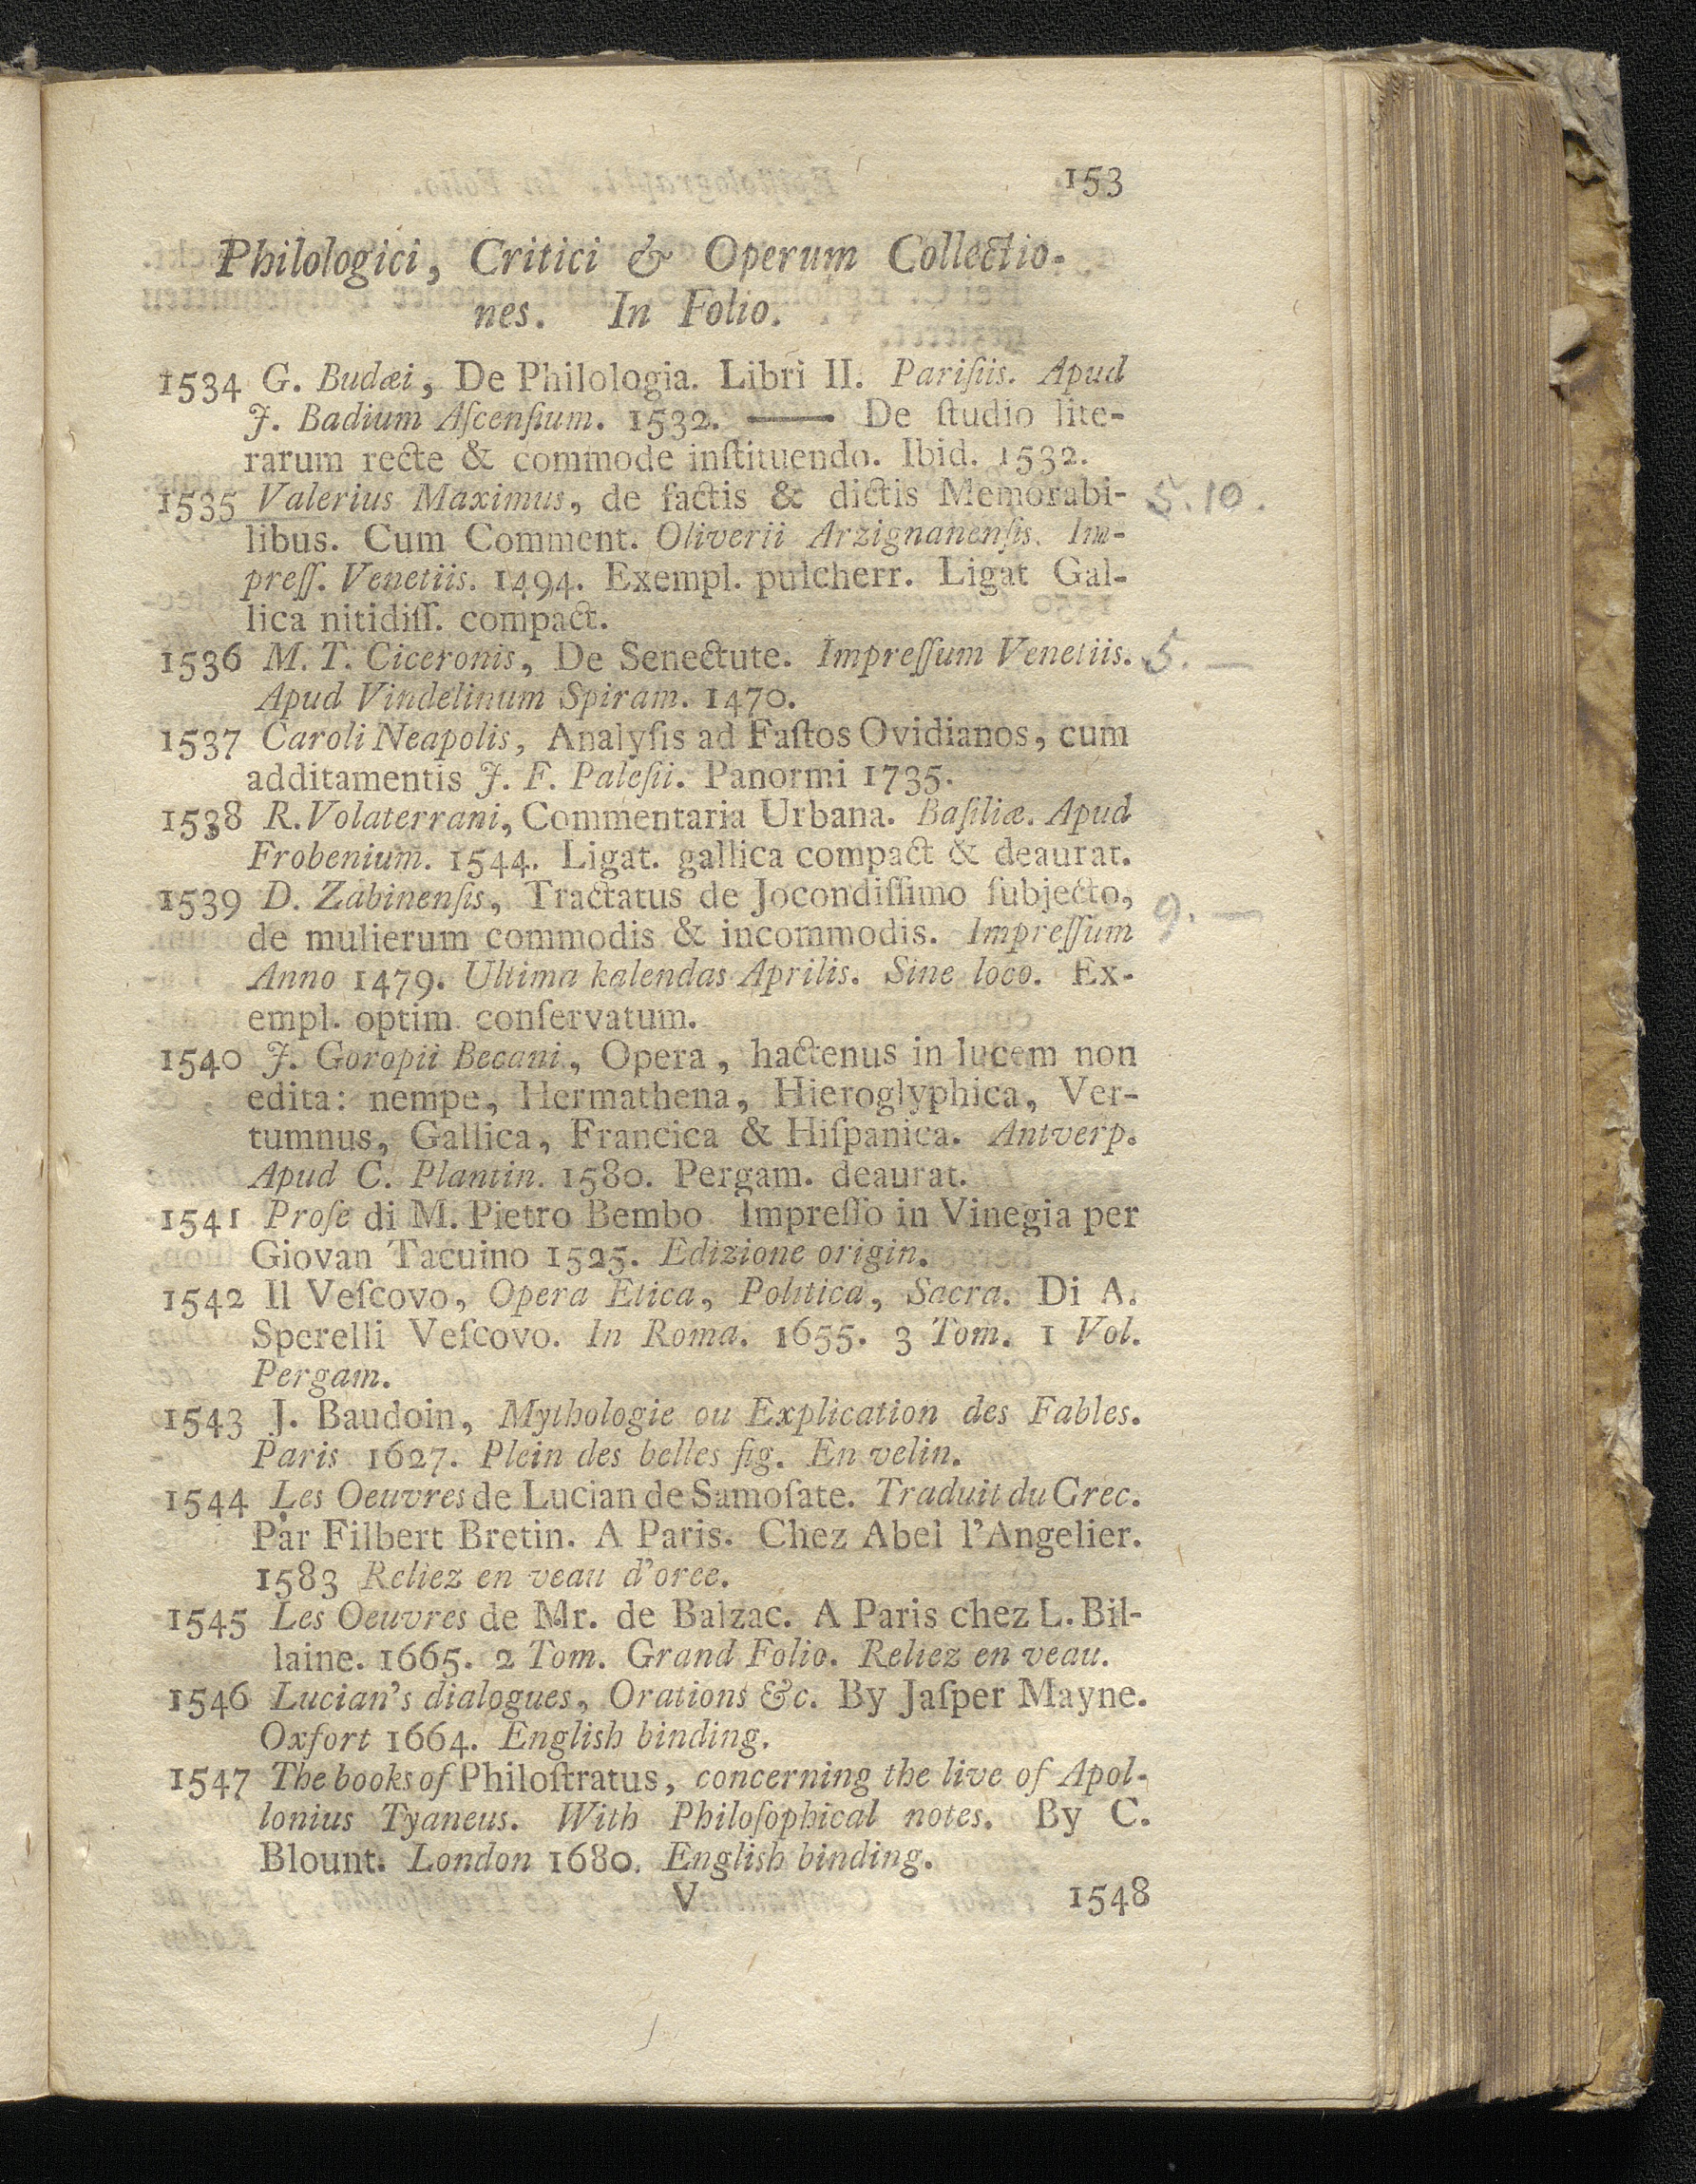 153
Philologici, Critici & Operum Collectio-
nes. In Folio.
1534 G. Budæi, De Philologia. Libri II. Pariſiis. Apud
J. Badium Aſcenſium. 1532. —— De ſtudio lite-
rarum recte & commode inſtituendo. Ibid. 1532.
1535 Valerius Maximus, de factis & dictis Memorabi- 5.10.
libus. Cum Comment. Oliverii Arzignanenſis. Im-
preſſ. Venetiis. 1494. Exempl. pulcherr. Ligat Gal-
lica nitidiſſ. compact.
1536 M. T. Ciceronis, De Senectute. Impreſſum Venetiis. 5. —
Apud Vindelinum Spiram. 1470.
1537 Caroli Neapolis, Analyſis ad Faſtos Ovidianos, cum
additamentis J. F. Paleſii. Panormi 1735.
1538 R. Volaterrani, Commentaria Urbana. Baſiliæ. Apud
Frobenium. 1544. Ligat. gallica compact & deaurat.
1539 D. Zabinenſis, Tractatus de Jocondiſſimo ſubjecto, 9. —
de mulierum commodis & incommodis. Impreſſum
Anno 1479. Ultima kalendas Aprilis. Sine loco. Ex-
empl. optim. conſervatum.
1540 J. Goropii Becani, Opera, hactenus in lucem non
edita: nempe, Hermathena, Hieroglyphica, Ver-
tumnus, Gallica, Francica & Hiſpanica. Antverp.
Apud C. Plantin. 1580. Pergam. deaurat.
1541 Proſe di M. Pietro Bembo. Impreſſo in Vinegia per
Giovan Tacuino 1525. Edizione origin.
1542 Il Veſcovo, Opera Etica, Politica, Sacra. Di A.
Sperelli Veſcovo. In Roma. 1655. 3 Tom. 1 Vol.
Pergam.
1543 J. Baudoin, Mythologie ou Explication des Fables.
Paris 1627. Plein des belles fig. En velin.
1544 Les Oeuvres de Lucian de Samoſate. Traduit du Grec.
Par Filbert Bretin. A Paris. Chez Abel l'Angelier.
1583 Reliez en veau d'oree.
1545 Les Oeuvres de Mr. de Balzac. A Paris chez L. Bil-
laine. 1665. 2 Tom. Grand Folio. Reliez en veau.
1546 Lucian's dialogues, Orations &c. By Jaſper Mayne.
Oxfort 1664. English binding.
1547 The books of Philoſtratus, concerning the live of Apol-
lonius Tyaneus. With Philoſophical notes. By C.
Blount. London 1680. English binding.
V 1548